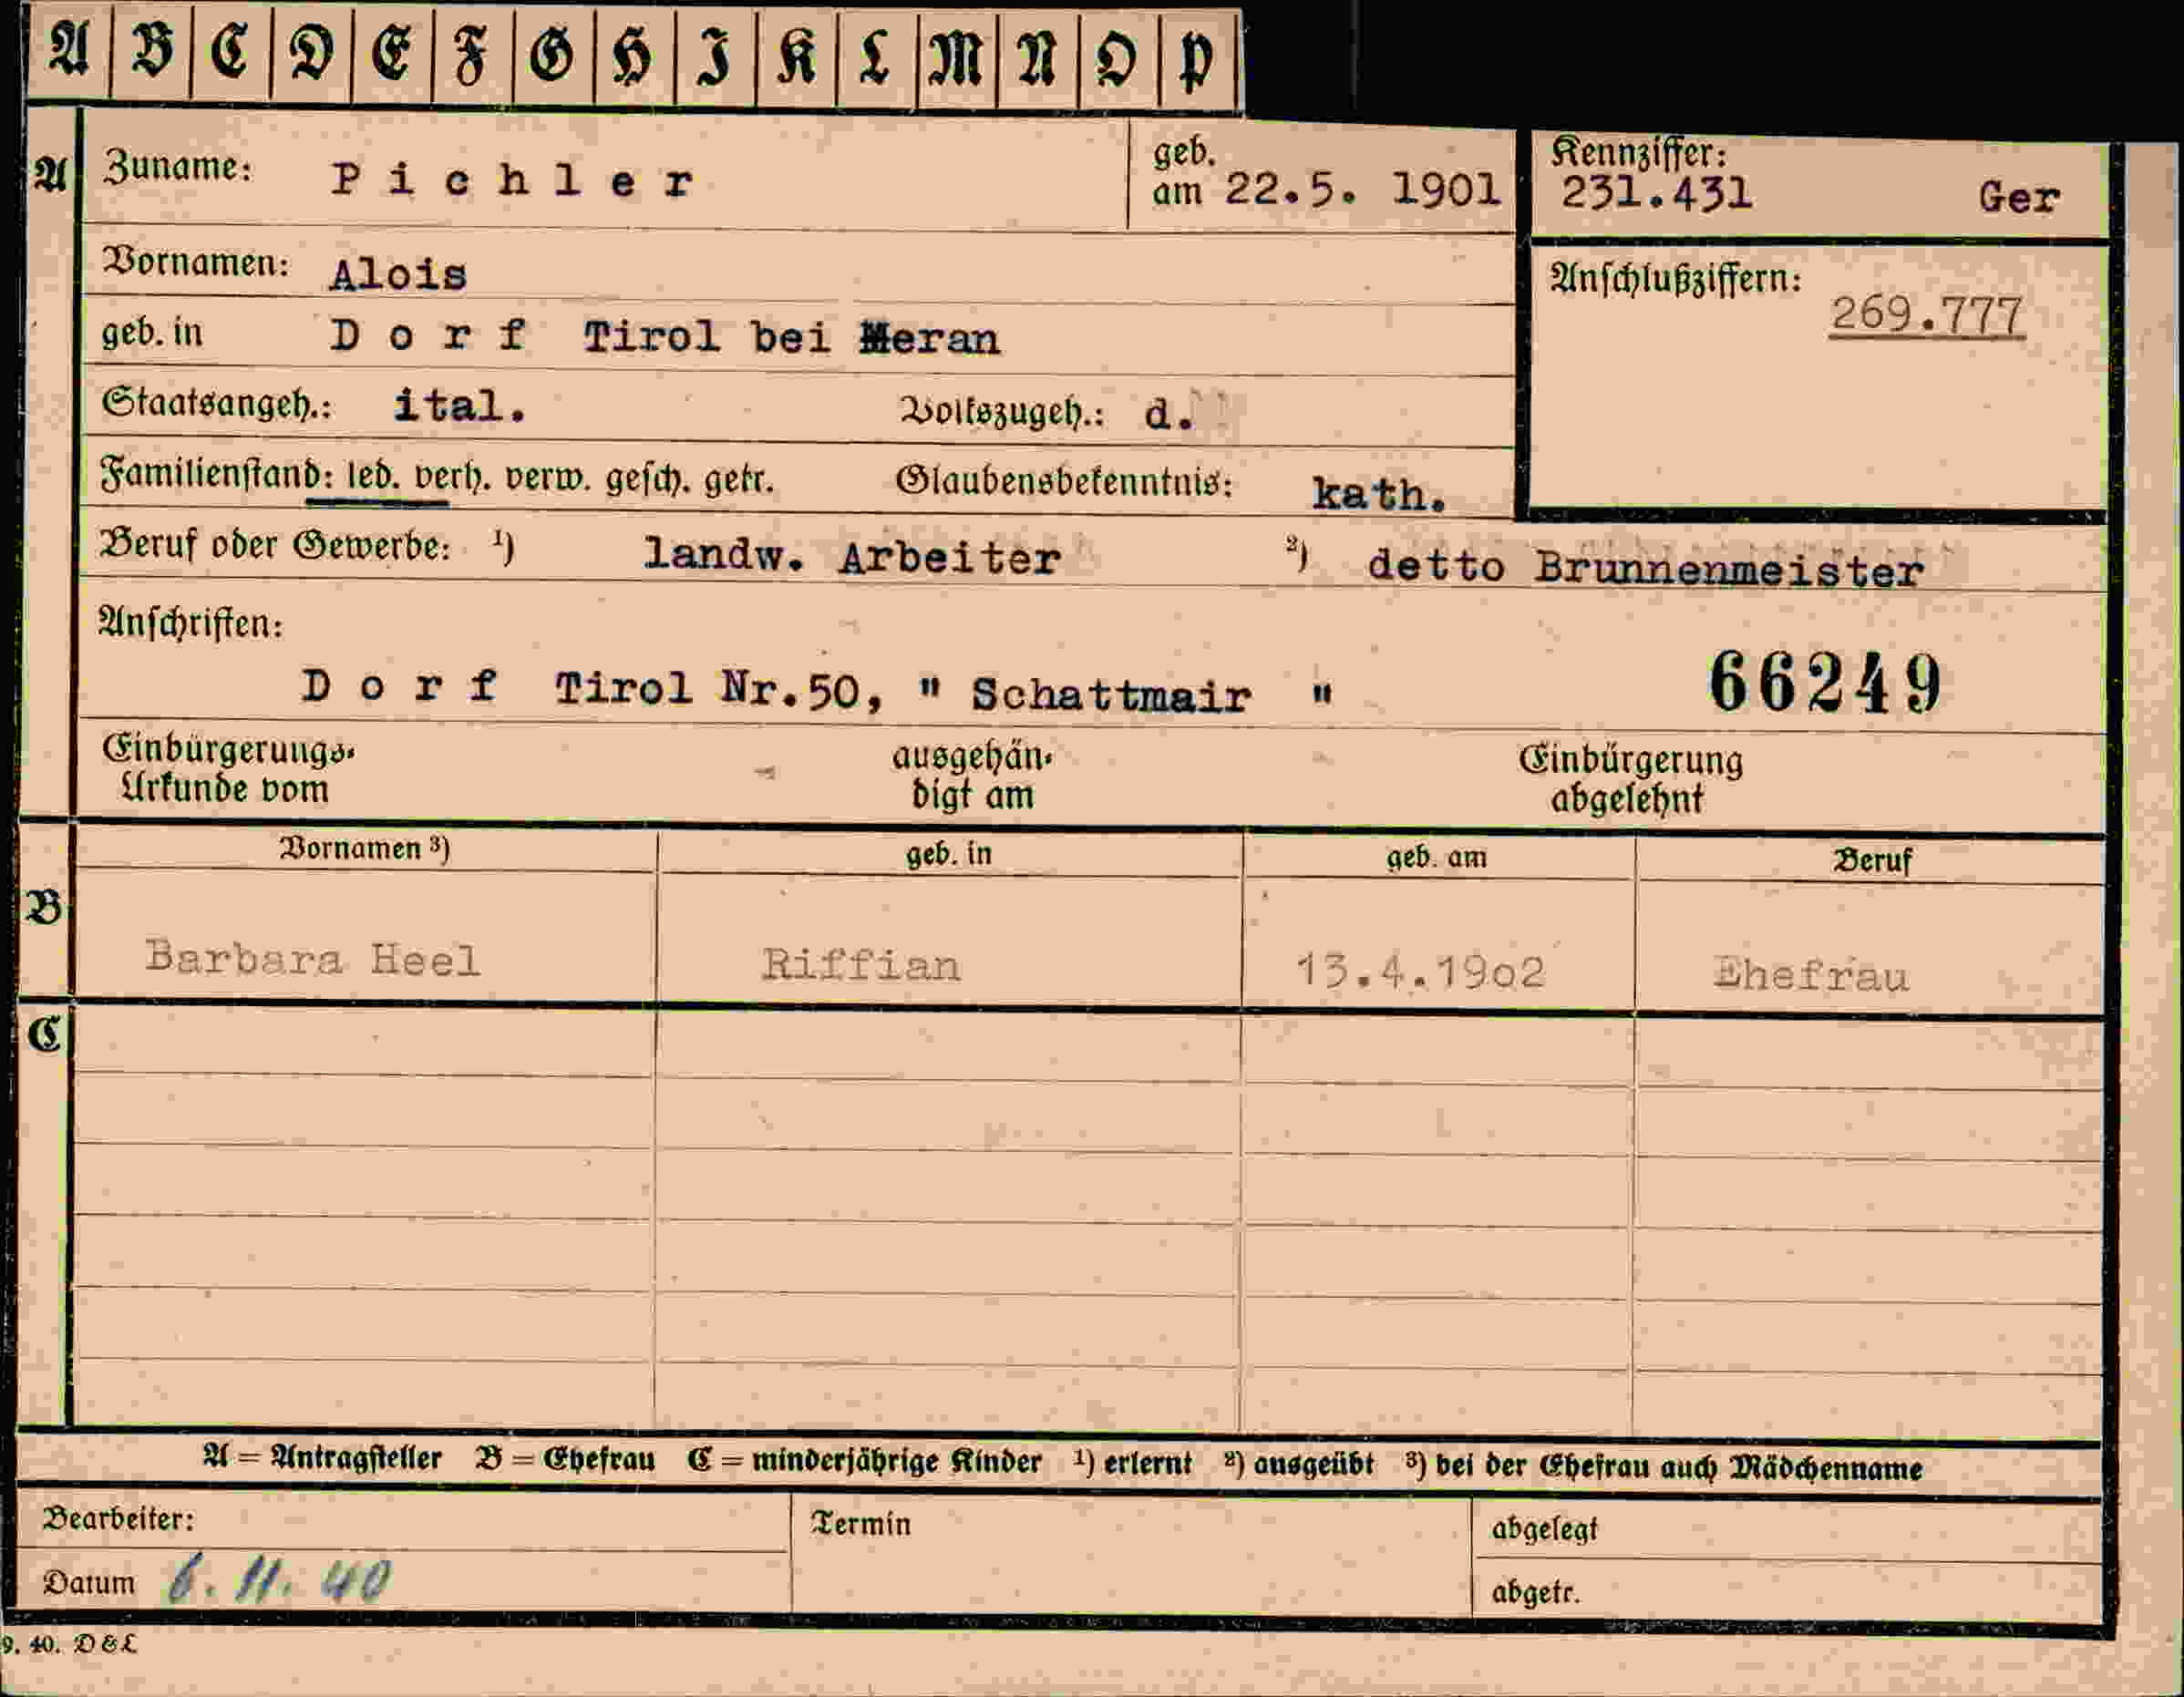 A B C D E F G H I K L M N O P
A Zuname: Pichler geb. am 22.5. 1901 Kennziffer: 231.431 Ger
Vornamen: Alois Anschlußziffern: 269.777
geb. in Dorf Tirol bei Meran
Staatsangeh.: ital. Volkszugeh.: d.
Familienstand: led. verh. verw. gesch. getr. Glaubensbekenntnis: kath.
Beruf oder Gewerbe: ¹) landw. Arbeiter ²) detto Brunnenmeister
Anschriften:
Dorf Tirol Nr.50, " Schattmair " 66249
Einbürgerungs- ausgehän- Einbürgerung
Urkunde vom digt am abgelehnt
Vornamen ³) geb. in geb. am Beruf
B
Barbara Heel Riffian 13.4.19o2 Ehefrau
C
A = Antragsteller B = Ehefrau C = minderjährige Kinder ¹) erlernt ²) ausgeübt ³) bei der Ehefrau auch Mädchenname
Bearbeiter: Termin abgelegt
Datum 6. 11. 40 abgetr.
9. 40. D & L